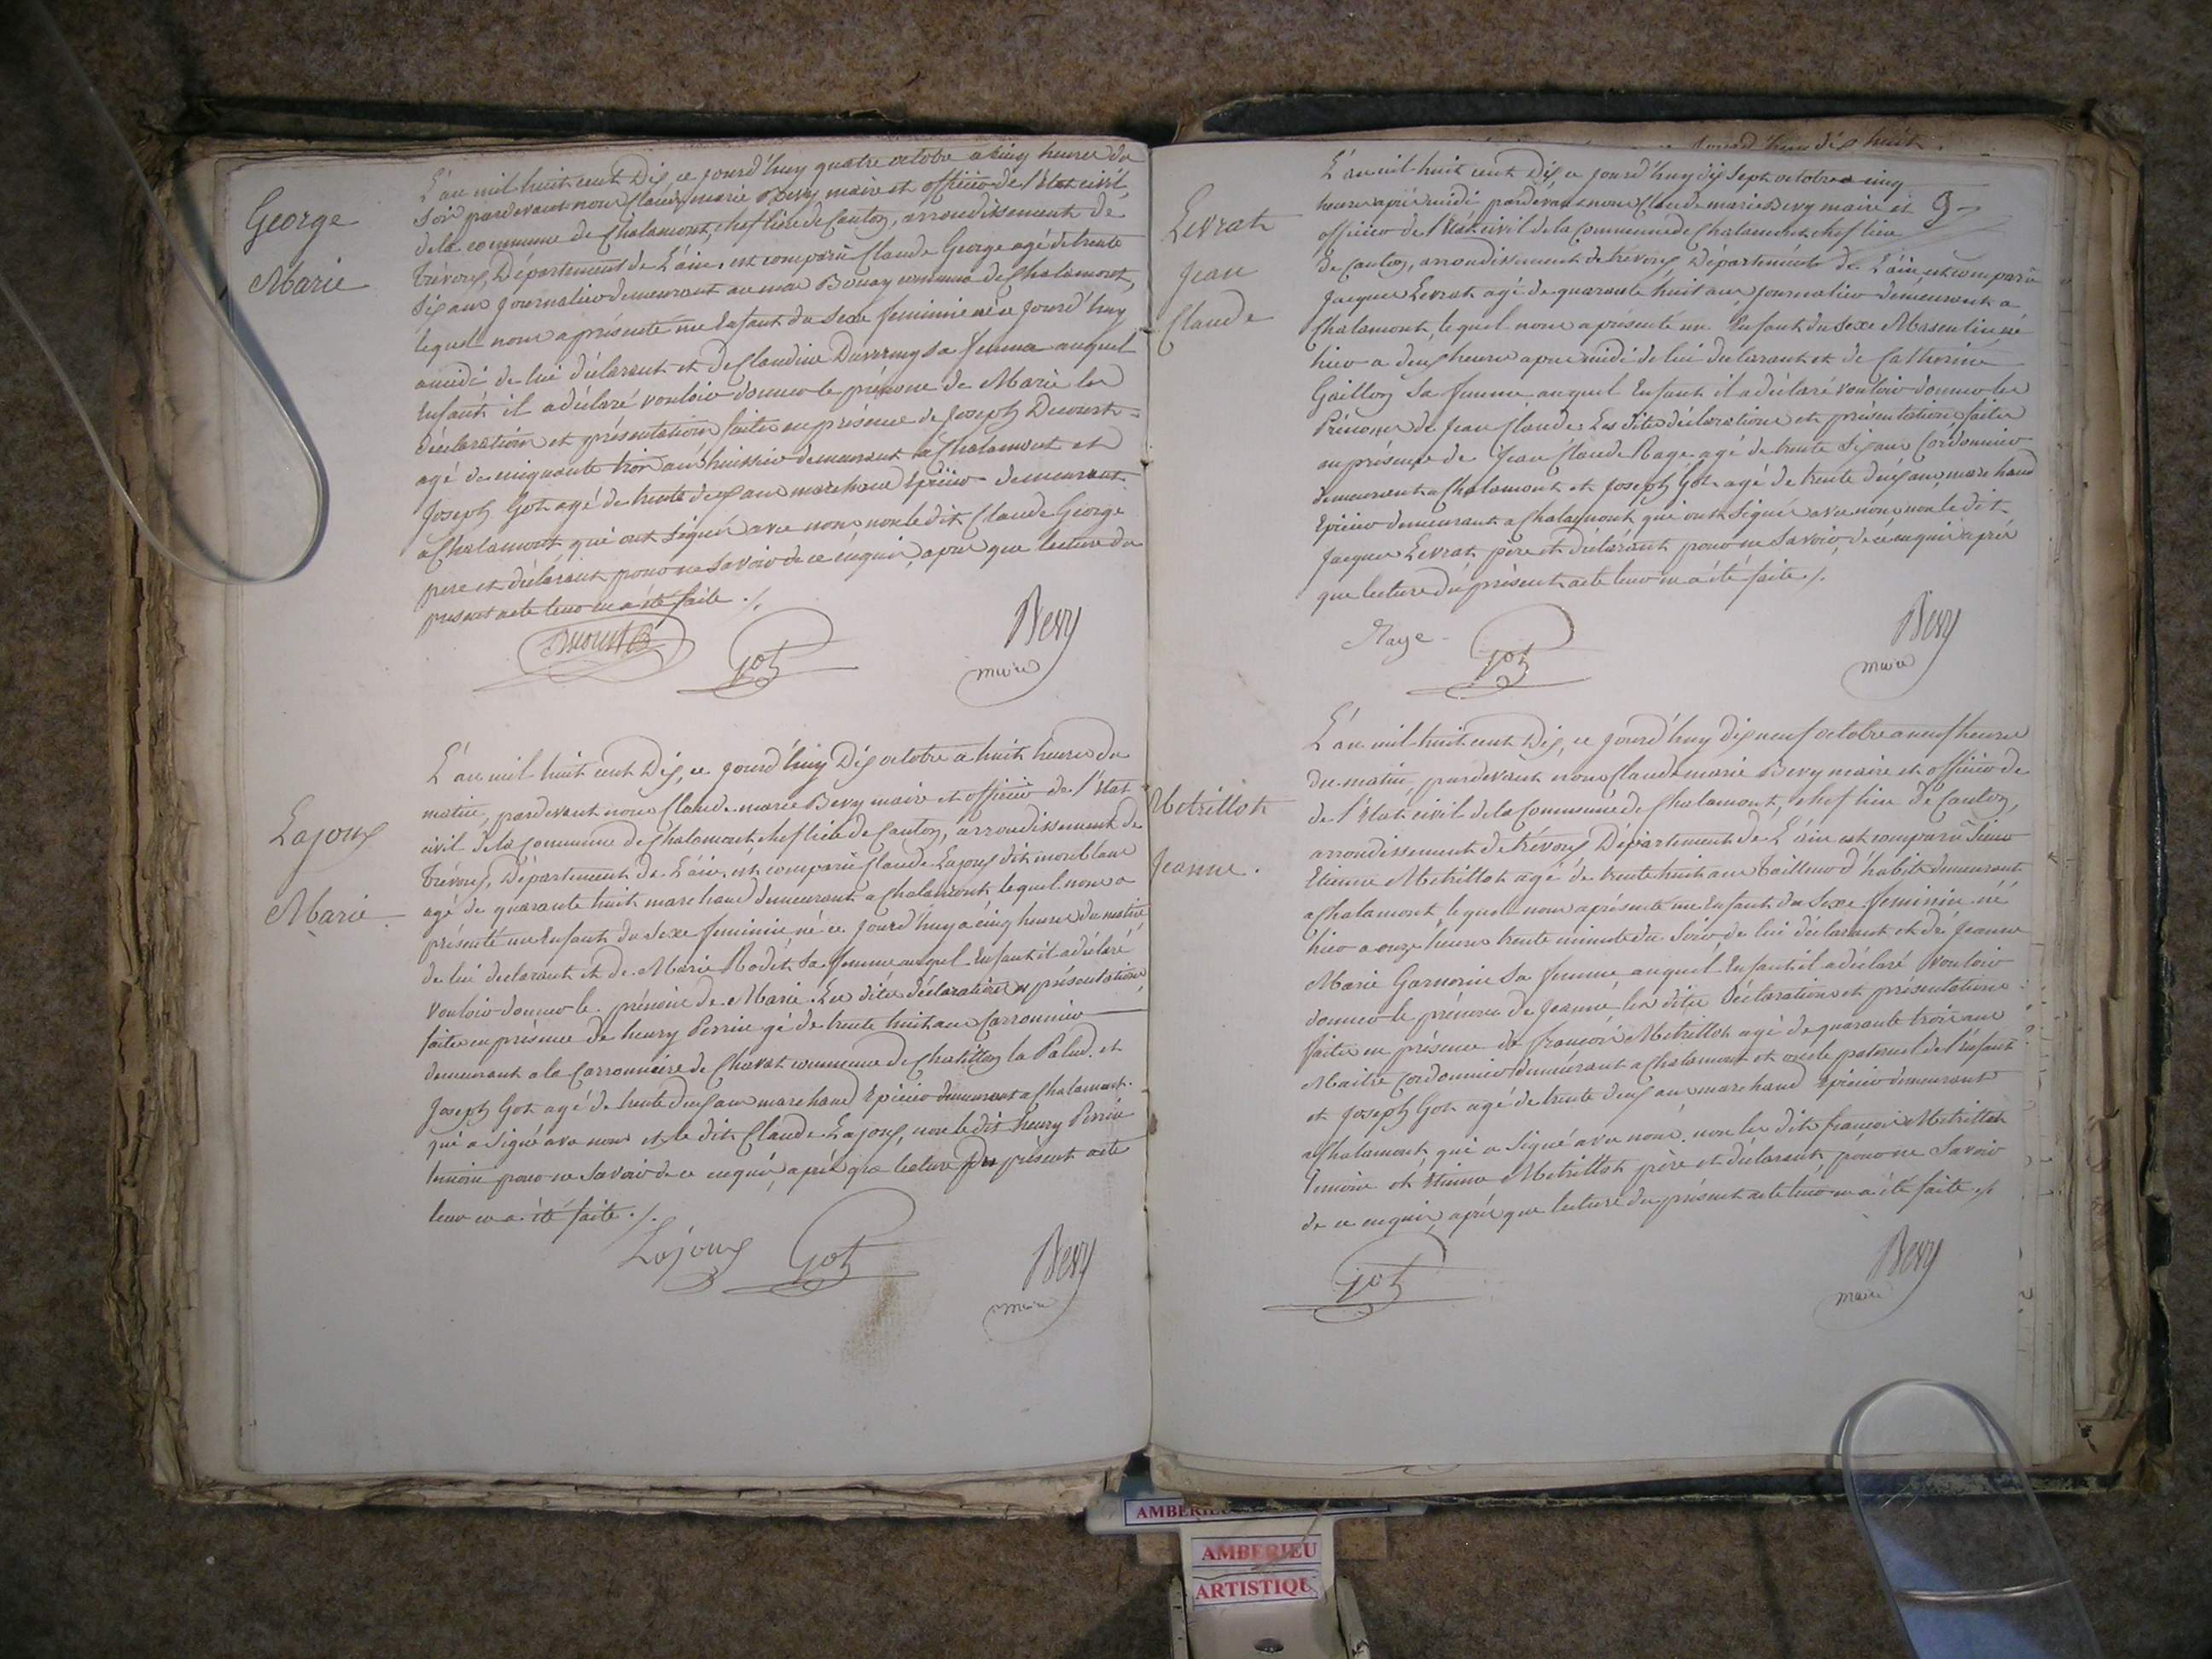 George
Marie
L'an mil huit cent Dix, ce jourd'huy quatre octobre a cinq heures du
soir pardevant nous Claude marie Bevy maire et officier de l'Etat civil,
de la commune de Chalamont, chef lieu de Canton, arrondissement de
Trévoux, Département de L'ain, est comparu Claude George agé de trente
dix ans journalier demeurant au mas commune de Chalamont,
lequel nous a présenté un Enfant du Sexe feminin né ce jourd'huy
a midi de lui déclarant et de Claudine sa femme auquel
Enfant il a déclaré vouloir donner le prénom de Marie les
déclaration et présentation faites en présence de Joseph Ducourt
agé de cinquante trois ans huissier demeurant a Chalamont et
Joseph Got agé de trente deux ans marchand Epicier demeurant
a Chalamont, qui ont signé avec nous, non le dit Claude George
pere et déclarant pour ne savoir de ce enquis, apres que lecture du
present acte leur en a été faite ./.
Got
Bevy
maire
Lajoux
Marie
L'an mil huit cent Dix, ce jourd'huy Dix octobre a huit heures du
matin, pardevant nous Claude marie Bevy maire et officier de l'Etat
civil de la Commune de Chalamont chef lieu de Canton, arrondissement de
Trévoux, Département de L'ain, est comparu Claude Lajoux dit montblanc
agé de quarante huit marchand demeurant a Chalamont lequel nous a
présenté un Enfant du Sexe feminin né ce jourd'huy a cinq heures du matin
de lui declarant et de Marie Rodet sa femme auquel Enfant il a déclaré
vouloir donner le prénom de Marie. Les dites déclaration et présentation
faites en présence de henry Perrin gé de trente huit ans Carronnier
demeurant a la Carronnière de Chavat commune de Chatillon la Palud. et
Joseph Got agé de trente deux ans marchand Epicier demeurant a Chalamont.
qui a signé avec nous et le dit Claude Lajoux, non le dit henry Perrin
temoin pour ne savoir de ce enquis, après que lecture du présent acte
leur en a été faite ./.
Lajoux
Got
Bevy
maire
9
Levrat
Jean
Claude
L'an mil huit cent Dix, ce jourd'huy dix sept octobre a cinq
heures après midi pardevant nous Claude marie Bevy maire et
officier de l'Etat civil de la Commune de Chalamont chef lieu
de Canton, arrondissement de trévoux Département de L'ain, est comparu
Jacques Levrat agé de quarante huit ans, journalier demeurant a
Chalamont, lequel nous a présenté un Enfant du Sexe Masculin né
hier a deux heures apres midi de lui declarant et de Catherine
Gaillon sa femme auquel Enfant il a déclaré vouloir donner les
Prénoms de Jean Claude. Les dites déclaration et présentation faites
en présence de Jean Claude Rage agé de trente Six ans Cordonnier
demeurant a Chalamont et Joseph Got agé de trente deux ans, marchand
Epicier demeurant a Chalamont, qui ont signé avec nous, non le dit
Jacques Levrat père et déclarant pour ne savoir, de ce enquis après
que lecture du présent acte leur en a été faite ./.
Rage
Got
Bevy
maire
Metrillot
Jeanne.
L'an mil huit cent Dix, ce jourd'huy dix neuf octobre a neuf heures
du matin, pardevant nous Claude marie Bevy maire et officier de
de l'Etat civil de la Commune de Chalamont, chef lieu de Canton,
arrondissement de trévoux Département de L'ain est comparu Sieur
Etienne Metrillot agé de trente huit ans Tailleur d'habits demeurant
a Chalamont, lequel nous a présenté un Enfant du Sexe feminin né
hier a onze heures trente minute du Soir, de lui déclarant et de Jeanne
Marie Garnorin sa femme auquel Enfant il a déclaré vouloir
donner le prénom de Jeanne, les dites Déclaration et présentation
faites en présence de françois Metrillot agé de quarante trois ans
Maitre Cordonnier demeurant a Chalamont et oncle paternel de l'enfant
et Joseph Got agé de trente deux ans marchand Epicier demeurant
a Chalamont, qui a signé avec nous. non les dits françois Metrillot
temoin et Etienne Metrillot père et déclarant, pour ne savoir
de ce enquis, après que lecture du présent acte leur en a été faite ./.
Got
Bevy
maire
AMBERIEU
ARTISTIQU